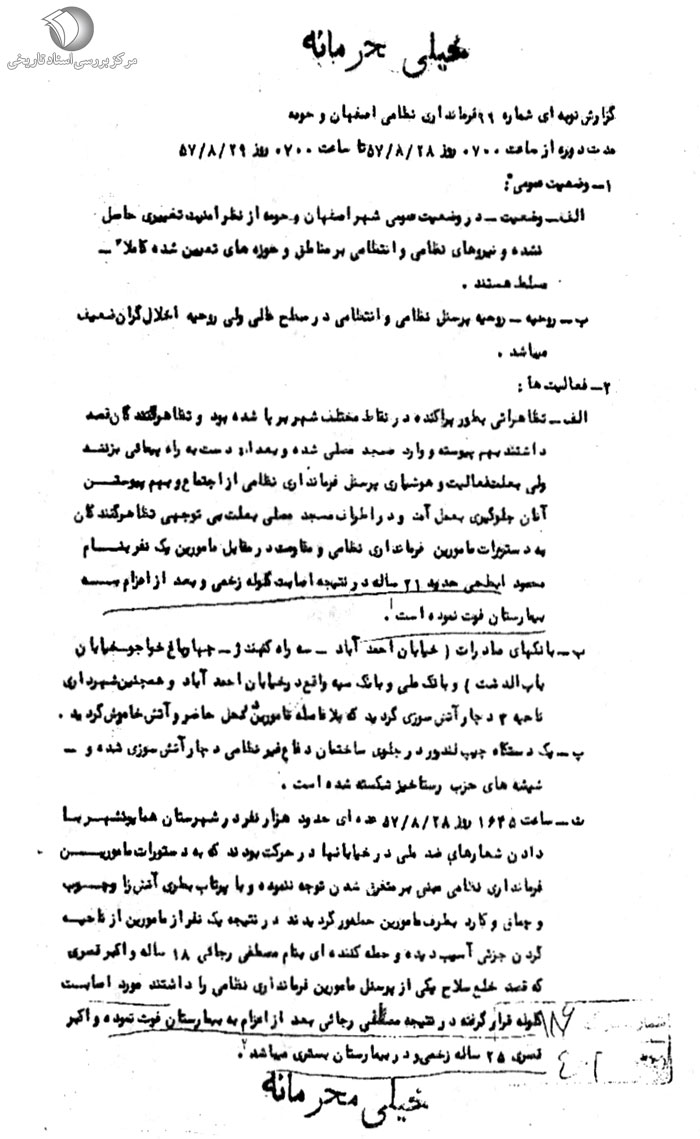 مرکز بررسی اسناد تاریخی
خیلی محرمانه
گزارش نوبه ای شماره ۹۹ فرمانداری نظامی اصفهان و حومه
مدت دوره از ساعت ۰۷۰۰ روز ۵۷/۸/۲۸ تا ساعت ۰۷۰۰ روز ۵۷/۸/۲۹
۱ــ وضعیت عمومی :
الف ــ وضعیت ــ در وضعیت عمومی شهر اصفهان و حومه از نظر امنیت تغییری حاصل
نشده و نیروهای نظامی و انتظامی بر مناطق و حوزه های تعیین شده کاملا" ــ
مسلط هستند .
ب ــ روحیه ــ روحیه پرسنل نظامی و انتظامی در سطح عالی ولی روحیه اخلال گران ضعیف
میباشد .
۲ــ فعالیت ها :
الف ــ تظاهراتی بطور پراکنده در نقاط مختلف شهر بر پا شده بود و تظاهرکنندگان قصد
داشتند بهم پیوسته و وارد مسجد مصلی شده و بعدا" دست به راه پیمائی بزنند
ولی بعلت فعالیت و هوشیاری پرسنل فرمانداری نظامی از اجتماع و بهم پیوستن
آنان جلوگیری بعمل آمد و در اطراف مسجد مصلی بعلت بی توجهی تظاهرکنندگان
به دستورات مامورین فرمانداری نظامی و مقاومت در مقابل مامورین یک نفر بنام
محمود ابطحی حدید ۲۱ ساله در نتیجه اصابت گلوله زخمی و بعد از اعزام به
بیمارستان فوت نموده است .
ب ــ بانکهای صادرات ( خیابان احمد آباد ــ سه راه کهندژ ــ چهارباغ خواجو ــ خیابان
باب الدشت ) و بانک ملی و بانک سپه واقع در خیابان احمد آباد و همچنین شهرداری
ناحیه ۳ دچار آتش سوزی گردید که بلافاصله مامورین بمحل حاضر و آتش خاموش گردید .
پ ــ یک دستگاه جیپ لندرور در جلوی ساختمان دفاع غیر نظامی دچار آتش سوزی شده و ــ
شیشه های حزب رستاخیز شکسته شده است .
ت ــ ساعت ۱۶۴۵ روز ۵۷/۸/۲۸ عده ای حدود هزار نفر در شهرستان همایونشهر با
دادن شعارهای ضد ملی در خیابانها در حرکت بودند که به دستورات مامورین
فرمانداری نظامی مبنی بر متفرق شدن توجه ننموده و با پرتاب بطری آتش زا و چوب
و چماق و کارد بطرف مامورین حمله‌ور گردیدند در نتیجه یک نفر از مامورین از ناحیه
گردن جزئی آسیب دیده و حمله کننده ای بنام مصطفی رجائی ۱۸ ساله و اکبر قسری
که قصد خلع سلاح یکی از پرسنل مامورین فرمانداری نظامی را داشتند مورد اصابت
گلوله قرار گرفته در نتیجه مصطفی رجائی بعد از اعزام به بیمارستان فوت نموده و اکبر
قسری ۲۵ ساله زخمی و در بیمارستان بستری میباشد .
خیلی محرمانه